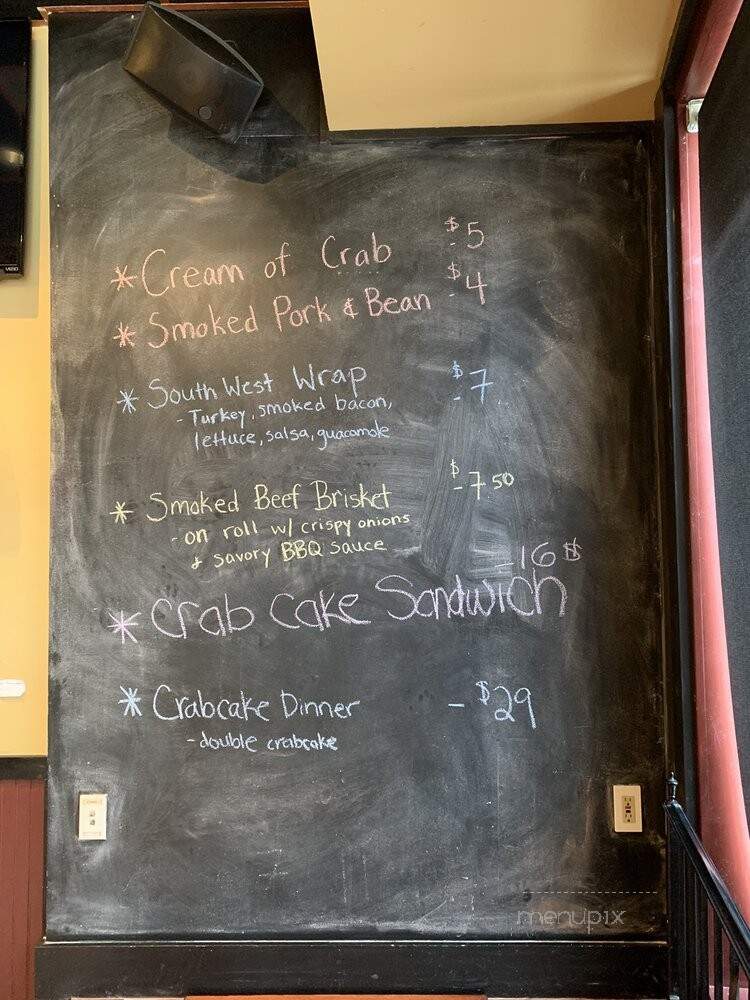 * Cream of Crab - $5
* Smoked Pork & Bean - $4
* South West Wrap - $7
- Turkey, smoked bacon,
lettuce, salsa, guacamole
* Smoked Beef Brisket - $7 50
- on roll w/ crispy onions
& savory BBQ sauce
- 16 $
* Crab Cake Sandwich
* Crabcake Dinner - $29
- double crabcake
VIZIO
menupix